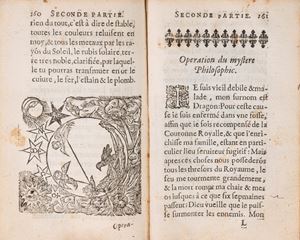 160 SECONDE PARTIE.
rien du tout, c'est à dire de stable,
toutes les couleurs reluisent en
noy, & tous les metaux par les ra-
yõs du Soleil, le rubis solaire, ter-
re tres noble, clarifiée, par laquel-
le tu pourras transmuer en or le
cuivre, le fer, l'estain & le plomb.
Opera-
SECONDE PARTIE. 161
Operation du mystere
Philosophic.
JE suis vieil debile & ma-
lade, mon surnom est
Dragon: Pour cette cau-
se ie suis enfermé dans une fosse,
affin que ie sois recompensé de la
Couronne Royalle, & que i'enri-
chisse ma famille, estant en parti-
culier lieu serviteur fugitif: Mais
apres ces choses nous possederõs
tous les thresors du Royaume, le
de la mort ronge ma chair & mes
os iusques à ce que six sepmaines
passent: Dieu vueille que ie puis-
se surmonter les ennemis. Mon
L